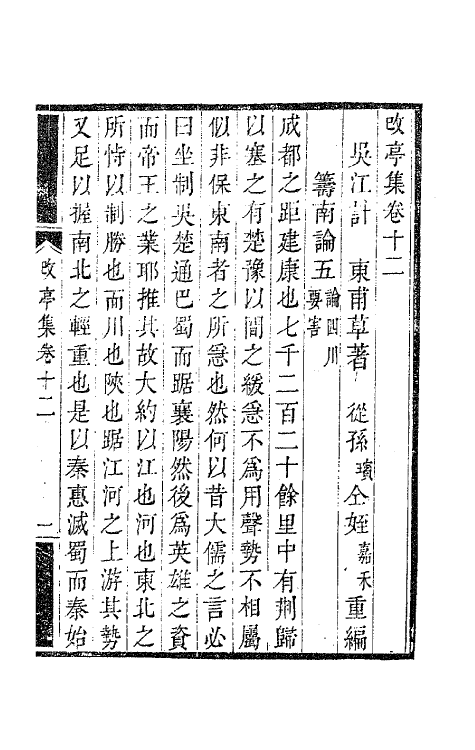 改亭集卷十二
吳江計　東甫草著　從孫璸仝姪嘉禾重編
籌南論五論四川要害
成都之距建康也七千二百二十餘里中有荆歸
以塞之有楚豫以間之緩急不為用聲勢不相屬
似非保東南者之所急也然何以昔大儒之言必
曰坐制吳楚通巴蜀而踞襄陽然後為英雄之資
而帝王之業耶推其故大約以江也河也東北之
所恃以制勝也而川也陝也踞江河之上游其勢
又足以握南北之輕重也是以秦惠滅蜀而秦始
改亭集卷十二
一